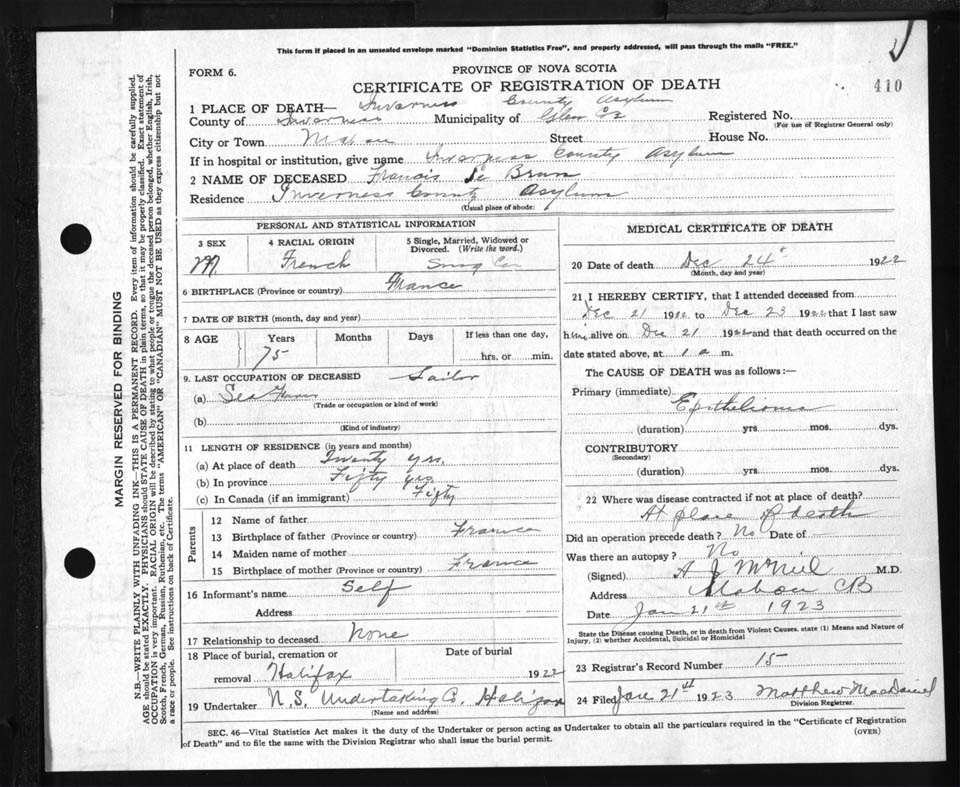 This form if placed in an unsealed envelope marked "Dominion Statistics Free", and properly addressed, will pass through the mails "FREE."
FORM 6.
PROVINCE OF NOVA SCOTIA
410
CERTIFICATE OF REGISTRATION OF DEATH
1 PLACE OF DEATH— Inverness County Asylum
County of Inverness Municipality of Glen Registered No.
(For use of Registrar General only)
City or Town Mabou Street House No.
If in hospital or institution, give name Inverness County Asylum
2 NAME OF DECEASED Francis Le Brun
Residence Inverness County Asylum
(Usual place of abode)
PERSONAL AND STATISTICAL INFORMATION
3 SEX 4 RACIAL ORIGIN 5 Single, Married, Widowed or Divorced. (Write the word.)
M French
6 BIRTHPLACE (Province or country) France
7 DATE OF BIRTH (month, day and year)
8 AGE Years Months Days If less than one day,
75 hrs. or min.
9. LAST OCCUPATION OF DECEASED Sailor
(a) Sea
(Trade or occupation or kind of work)
(b)
(Kind of industry)
11 LENGTH OF RESIDENCE (in years and months)
(a) At place of death Twenty yrs.
(b) In province Fifty yrs.
(c) In Canada (if an immigrant) Fifty
Parents
12 Name of father
13 Birthplace of father (Province or country) France
14 Maiden name of mother
15 Birthplace of mother (Province or country) France
16 Informant's name Self
Address
17 Relationship to deceased None
18 Place of burial, cremation or Date of burial
removal Halifax 1922
19 Undertaker N.S. Undertaking Co, Halifax
(Name and address)
MEDICAL CERTIFICATE OF DEATH
20 Date of death Dec 24 1922
(Month, day and year)
21 I HEREBY CERTIFY, that I attended deceased from
Dec 21 1922 to Dec 23 1922 that I last saw
him alive on Dec 21 1922 and that death occurred on the
date stated above, at 1 a m.
The CAUSE OF DEATH was as follows:—
Primary (immediate)
Epithelioma
(duration) yrs. mos. dys.
CONTRIBUTORY
(Secondary)
(duration) yrs. mos. dys.
22 Where was disease contracted if not at place of death?
At place of death
Did an operation precede death? No Date of
Was there an autopsy? No
(Signed) A J McNeil M.D.
Address Mabou CB
Date Jan 21st 1923
State the Disease causing Death, or in death from Violent Causes, state (1) Means and Nature of
Injury, (2) whether Accidental, Suicidal or Homicidal
23 Registrar's Record Number 15
24 Filed Jan 21st 1923 Matthew MacDaniel
Division Registrar.
SEC. 46—Vital Statistics Act makes it the duty of the Undertaker or person acting as Undertaker to obtain all the particulars required in the "Certificate of Registration
of Death" and to file the same with the Division Registrar who shall issue the burial permit.
(OVER)
MARGIN RESERVED FOR BINDING
N.B.—WRITE PLAINLY WITH UNFADING INK—THIS IS A PERMANENT RECORD. Every item of information should be carefully supplied.
AGE should be stated EXACTLY. PHYSICIANS should STATE CAUSE OF DEATH in plain terms, so that it may be properly classified. Exact statement of
OCCUPATION is very important. RACIAL ORIGIN will be described by stating to what people or tongue the deceased person belonged, whether English, Irish,
Scotch, French, German, Russian, Ruthenian, etc. The terms "AMERICAN" or "CANADIAN" MUST NOT BE USED as they express citizenship but not
a race or people. See instructions on back of Certificate.